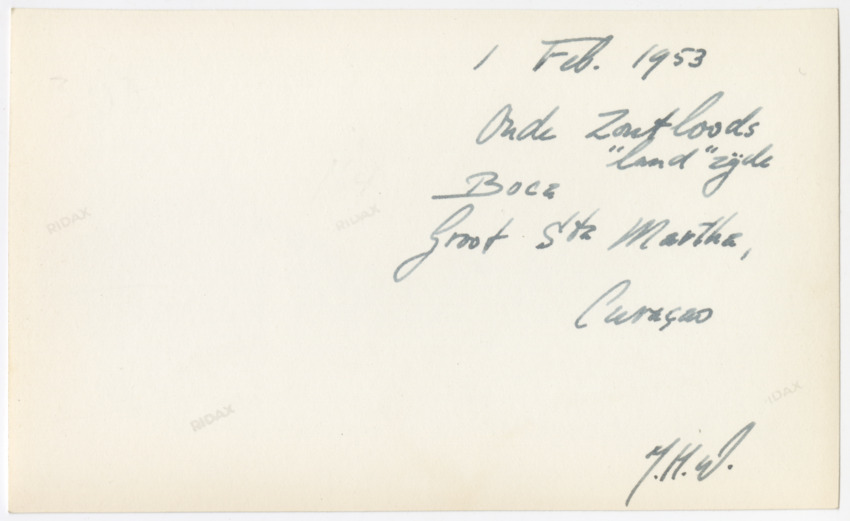 1 Feb. 1953
Oude Zoutloods
"land" zijde
Boca
Groot Sta Martha,
Curaçao
RIDAX
RIDAX
RIDAX
RIDAX
J.H.W.